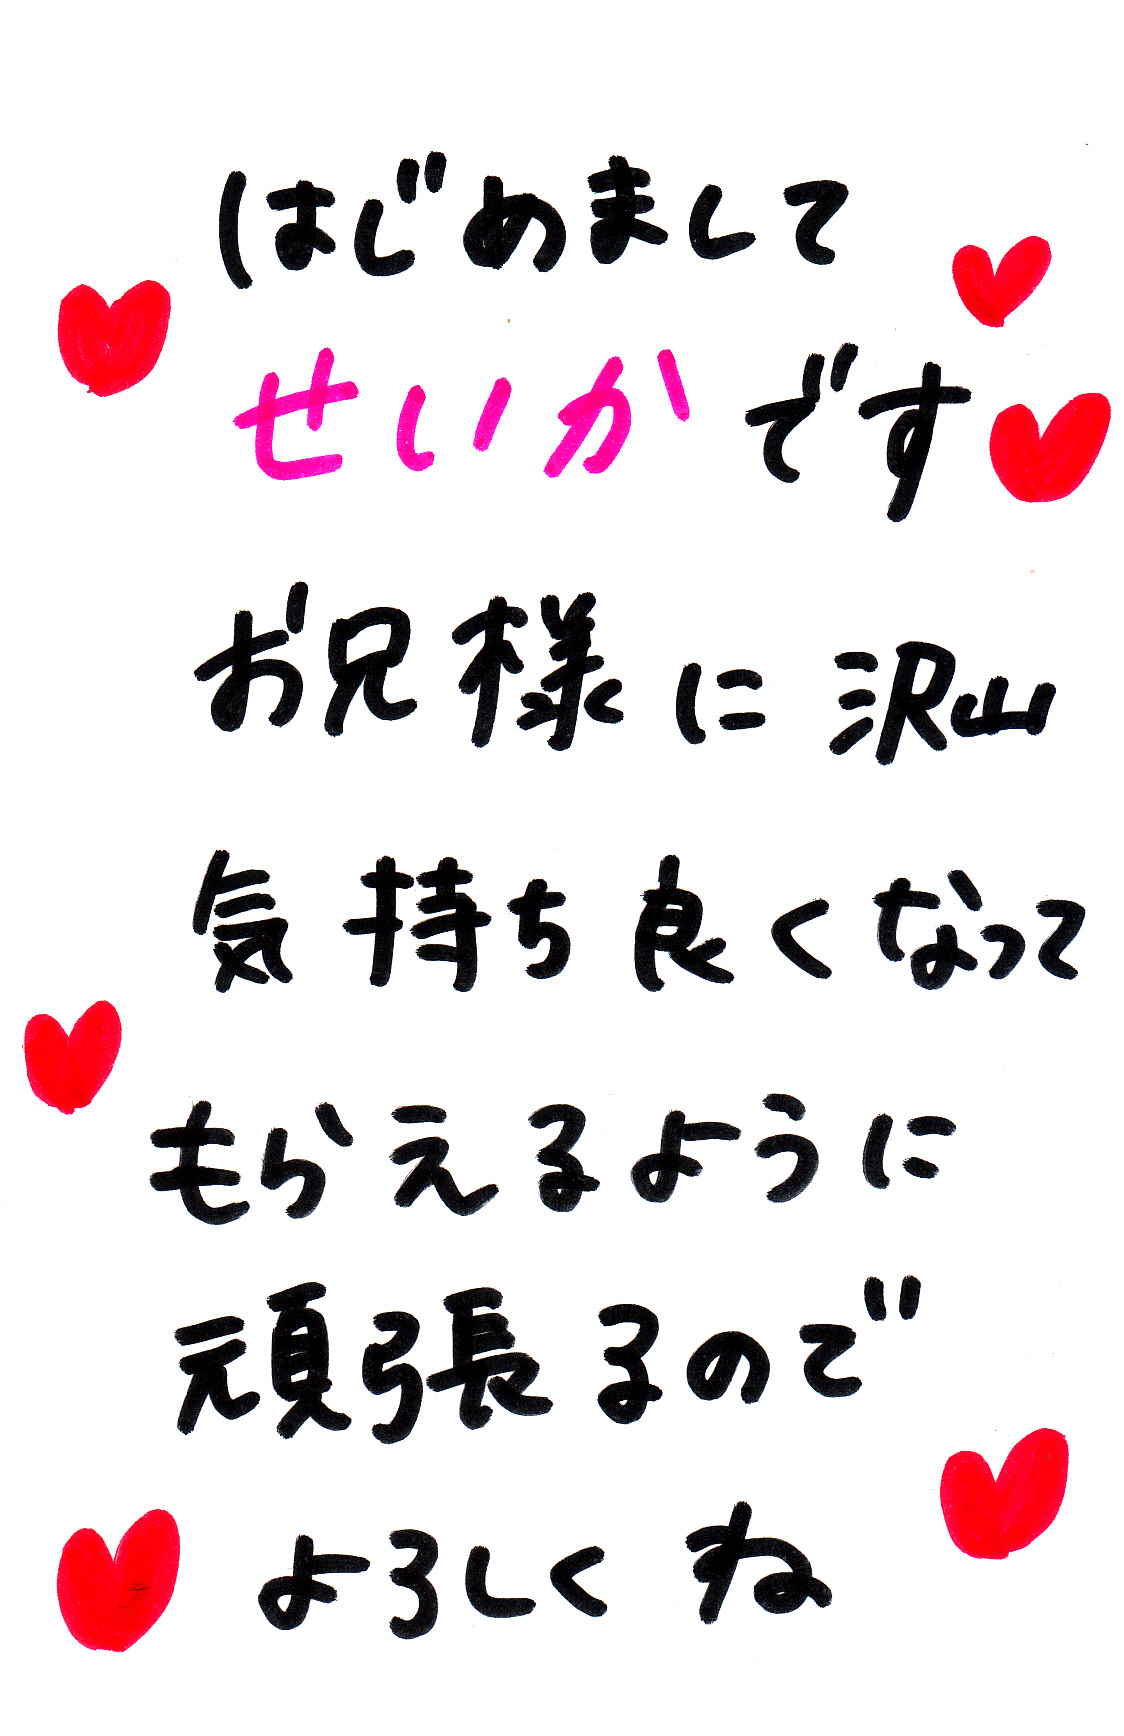 はじめまして
せいかです
お兄様に沢山
気持ち良くなって
もらえるように
頑張るので
よろしくね